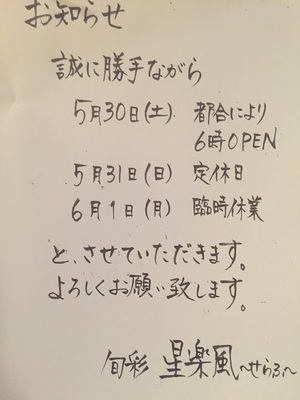 お知らせ
誠に勝手ながら
5月30日(土) 都合により
6時OPEN
5月31日(日) 定休日
6月1日(月) 臨時休業
と、させていただきます。
よろしくお願い致します。
旬彩 星楽風〜せらふ〜